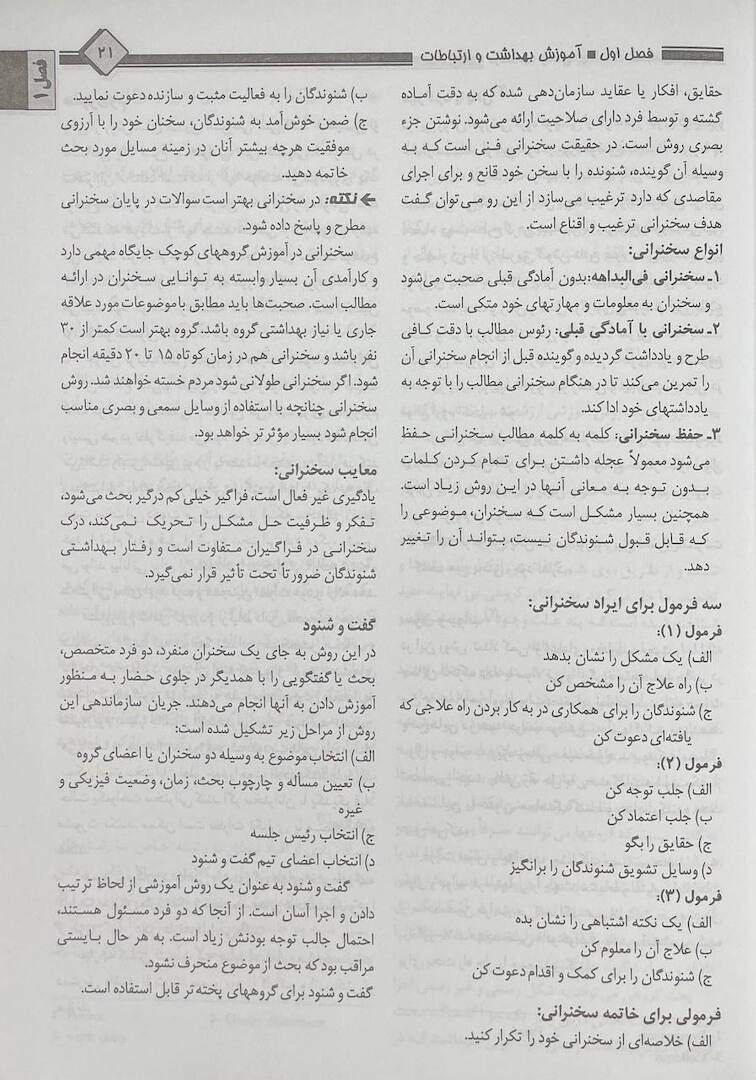 فصل اول ■ آموزش بهداشت و ارتباطات
۲۱
فصل ۱
حقایق، افکار یا عقاید سازمان‌دهی شده که به دقت آماده
گشته و توسط فرد دارای صلاحیت ارائه می‌شود. نوشتن جزء
بصری روش است. در حقیقت سخنرانی فنی است که به
وسیله آن گوینده، شنونده را با سخن خود قانع و برای اجرای
مقاصدی که دارد ترغیب می‌سازد از این رو می‌توان گفت
هدف سخنرانی ترغیب و اقناع است.
انواع سخنرانی:
۱ـ سخنرانی فی‌البداهه: بدون آمادگی قبلی صحبت می‌شود
و سخنران به معلومات و مهارتهای خود متکی است.
۲ـ سخنرانی با آمادگی قبلی: رئوس مطالب با دقت کافی
طرح و یادداشت گردیده و گوینده قبل از انجام سخنرانی آن
را تمرین می‌کند تا در هنگام سخنرانی مطالب را با توجه به
یادداشتهای خود ادا کند.
۳ـ حفظ سخنرانی: کلمه به کلمه مطالب سخنرانی حفظ
می‌شود معمولاً عجله داشتن برای تمام کردن کلمات
بدون توجه به معانی آنها در این روش زیاد است.
همچنین بسیار مشکل است که سخنران، موضوعی را
که قابل قبول شنوندگان نیست، بتواند آن را تغییر
دهد.
سه فرمول برای ایراد سخنرانی:
فرمول (۱):
الف) یک مشکل را نشان بدهد
ب) راه علاج آن را مشخص کن
ج) شنوندگان را برای همکاری در به کار بردن راه علاجی که
یافته‌ای دعوت کن
فرمول (۲):
الف) جلب توجه کن
ب) جلب اعتماد کن
ج) حقایق را بگو
د) وسایل تشویق شنوندگان را برانگیز
فرمول (۳):
الف) یک نکته اشتباهی را نشان بده
ب) علاج آن را معلوم کن
ج) شنوندگان را برای کمک و اقدام دعوت کن
فرمولی برای خاتمه سخنرانی:
الف) خلاصه‌ای از سخنرانی خود را تکرار کنید.
ب) شنوندگان را به فعالیت مثبت و سازنده دعوت نمایید.
ج) ضمن خوش‌آمد به شنوندگان، سخنان خود را با آرزوی
موفقیت هرچه بیشتر آنان در زمینه مسایل مورد بحث
خاتمه دهید.
نکته: در سخنرانی بهتر است سوالات در پایان سخنرانی
مطرح و پاسخ داده شود.
سخنرانی در آموزش گروههای کوچک جایگاه مهمی دارد
و کارآمدی آن بسیار وابسته به توانایی سخنران در ارائه
مطالب است. صحبت‌ها باید مطابق با موضوعات مورد علاقه
جاری یا نیاز بهداشتی گروه باشد. گروه بهتر است کمتر از ۳۰
نفر باشد و سخنرانی هم در زمان کوتاه ۱۵ تا ۲۰ دقیقه انجام
شود. اگر سخنرانی طولانی شود مردم خسته خواهند شد. روش
سخنرانی چنانچه با استفاده از وسایل سمعی و بصری مناسب
انجام شود بسیار مؤثرتر خواهد بود.
معایب سخنرانی:
یادگیری غیر فعال است، فراگیر خیلی کم درگیر بحث می‌شود،
تفکر و ظرفیت حل مشکل را تحریک نمی‌کند، درک
سخنرانی در فراگیران متفاوت است و رفتار بهداشتی
شنوندگان ضرورتاً تحت تأثیر قرار نمی‌گیرد.
گفت و شنود
در این روش به جای یک سخنران منفرد، دو فرد متخصص،
بحث یا گفتگویی را با همدیگر در جلوی حضار به منظور
آموزش دادن به آنها انجام می‌دهند. جریان سازماندهی این
روش از مراحل زیر تشکیل شده است:
الف) انتخاب موضوع به وسیله دو سخنران یا اعضای گروه
ب) تعیین مسأله و چارچوب بحث، زمان، وضعیت فیزیکی و
غیره
ج) انتخاب رئیس جلسه
د) انتخاب اعضای تیم گفت و شنود
گفت و شنود به عنوان یک روش آموزشی از لحاظ ترتیب
دادن و اجرا آسان است. از آنجا که دو فرد مسئول هستند،
احتمال جالب توجه بودنش زیاد است. به هر حال بایستی
مراقب بود که بحث از موضوع منحرف نشود.
گفت و شنود برای گروههای پخته‌تر قابل استفاده است.